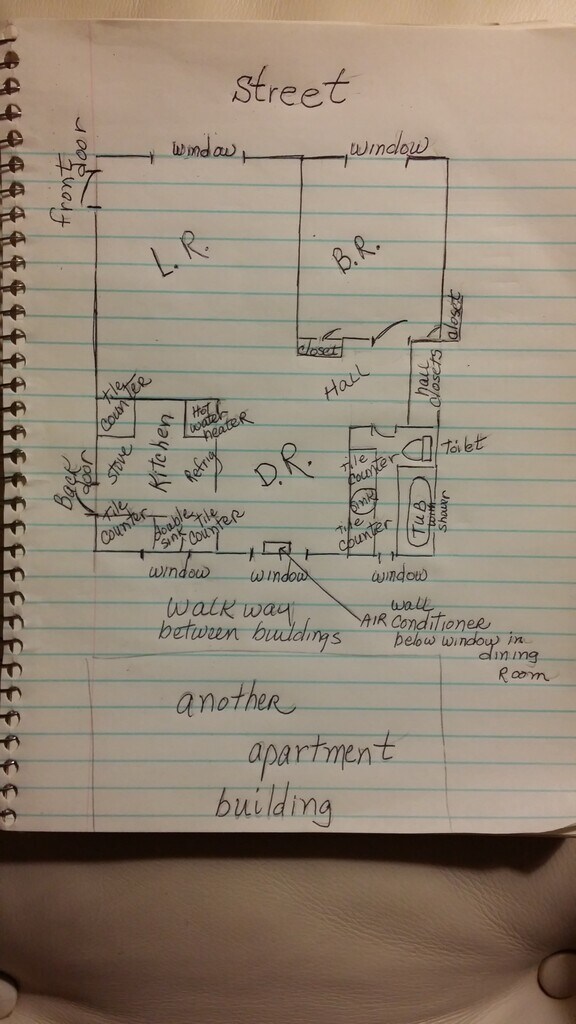 Street
window
window
front
door
L.R.
B.R.
closet
closet
Hall
hall
closets
Tile
counter
Hot
water
heater
Kitchen
stove
Refrig
D.R.
Back
door
Tile
counter
double
sink
Tile
counter
Tile
counter
Sink
Tile
counter
Toilet
TUB
with
shawr
window
window
window
walkway
between buildings
wall
AIR Conditioner
below window in
dining
Room
another
apartment
building